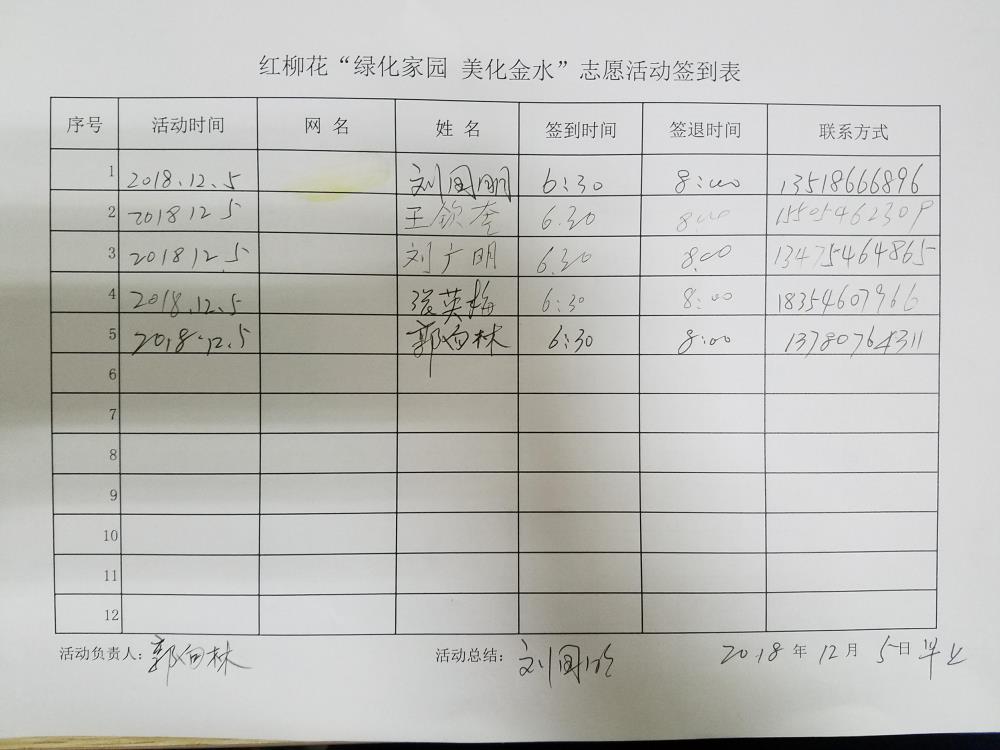 红柳花“绿化家园 美化金水”志愿活动签到表
序号 活动时间 网 名 姓 名 签到时间 签退时间 联系方式
1 2018.12.5 刘国明 6:30 8:00 13518666896
2 2018 12 5 王钦奎 6.30 8:00 15505462309
3 2018 12.5 刘广明 6.30 8.00 13475464865
4 2018.12.5 张英梅 6:30 8:00 18354607966
5 2018.12.5 郭向林 6:30 8:00 13780764311
6
7
8
9
10
11
12
活动负责人: 郭向林 活动总结: 刘国明 2018 年 12 月 5 日